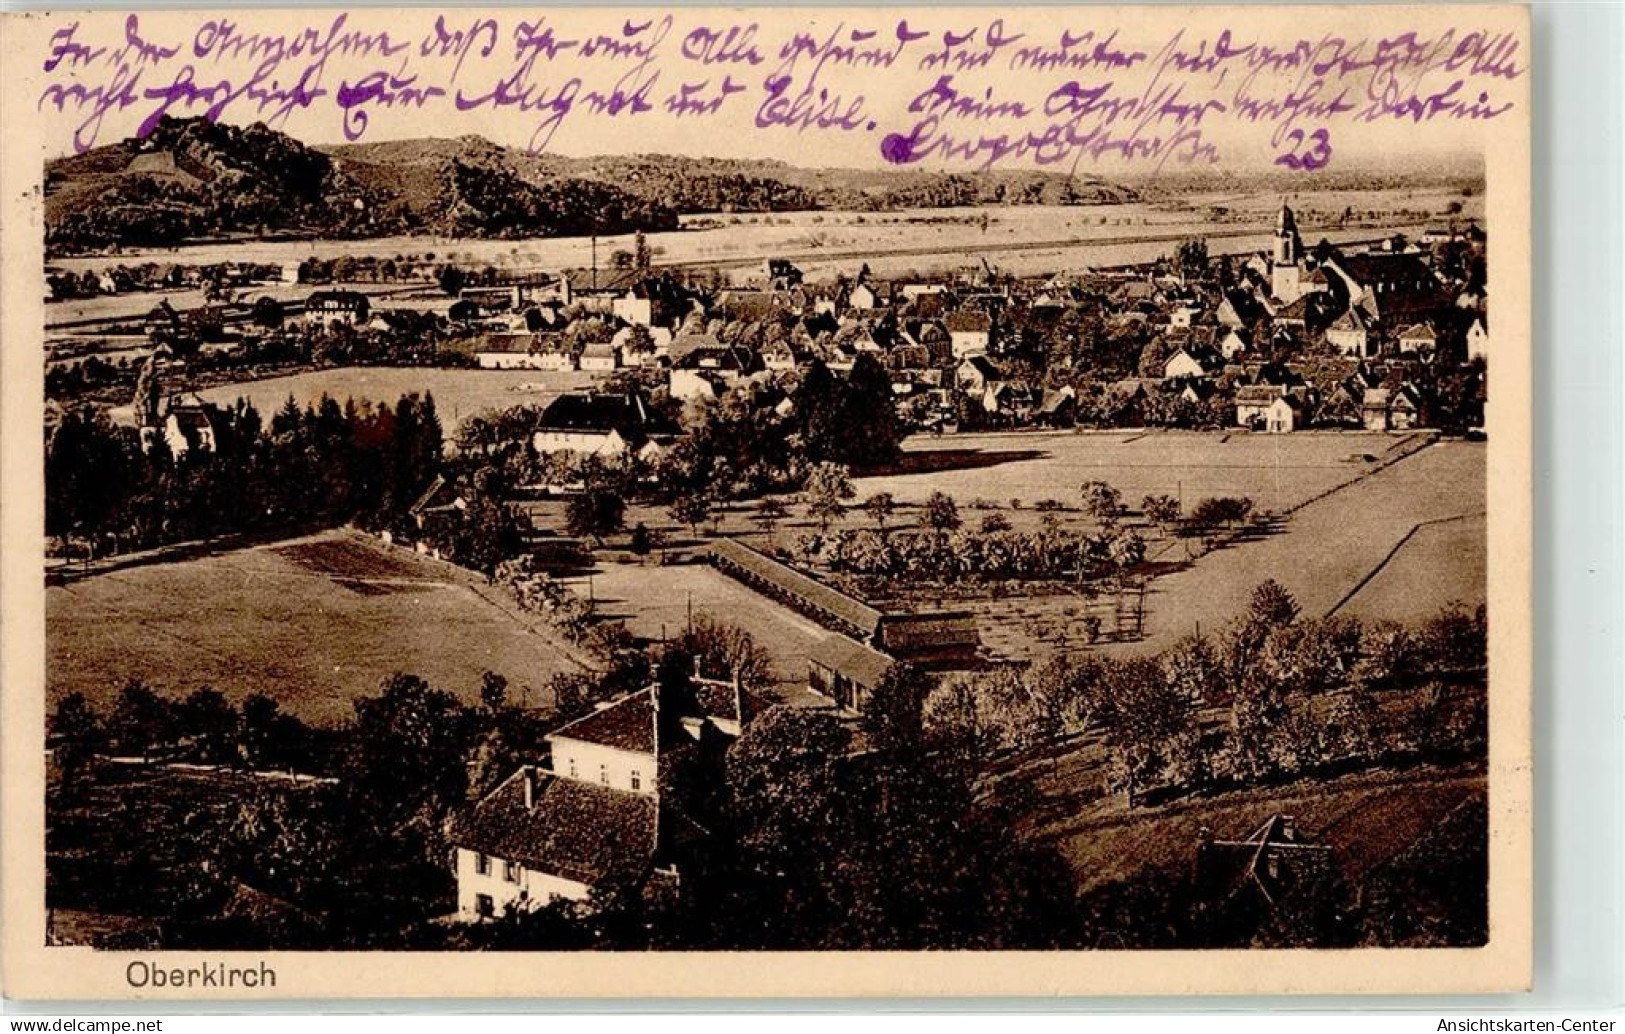 In der Annahme, daß Ihr auch Alle gesund und munter seid, grüßt Euch Alle
recht herzlichst Euer August und Elise. Meine Schwester wohnt dort in
Leopoldstraße 23
Oberkirch
www.ansichtskarten-center.de
Ansichtskarten-Center